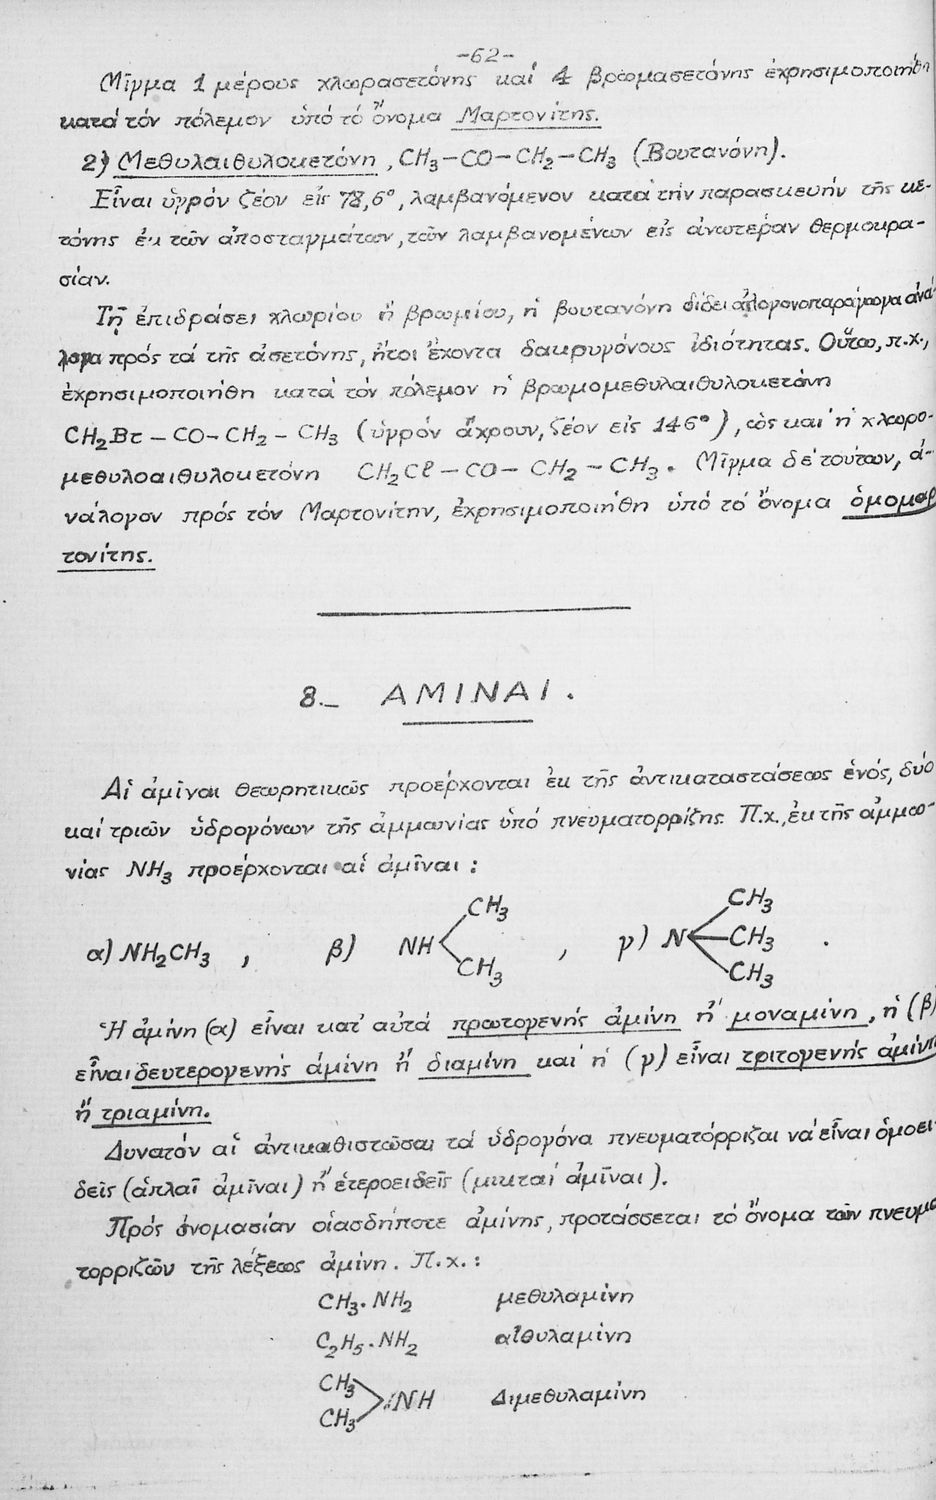 -62-
Μῖγμα 1 μέρους χλωρασετόνης καί 4 βρωμασετόνης ἐχρησιμοποιήθη
κατά τόν πόλεμον ὑπό τό ὄνομα Μαρτονίτης.
2) Μεθυλαιθυλοκετόνη, CH₃-CO-CH₂-CH₃ (Βουτανόνη).
Εἶναι ὑγρόν ζέον εἰς 78,6°, λαμβανόμενον κατά τήν παρασκευήν τῆς κε-
τόνης ἐκ τῶν ἀποσταγμάτων, τῶν λαμβανομένων εἰς ἀνωτέραν θερμοκρα-
σίαν.
Τῇ ἐπιδράσει χλωρίου ἤ βρωμίου, ἡ βουτανόνη δίδει ἁλογονοπαράγωγα ἀνά-
λογα πρός τά τῆς ἀσετόνης, ἤτοι ἔχοντα δακρυγόνους ἰδιότητας. Οὕτω, π.χ.,
ἐχρησιμοποιήθη κατά τόν πόλεμον ἡ βρωμομεθυλαιθυλοκετόνη
CH₂Br - CO- CH₂ - CH₃ (ὑγρόν ἄχρουν, ζέον εἰς 146°), ὡς καί ἡ χλωρο-
μεθυλοαιθυλοκετόνη CH₂Cl - CO- CH₂ - CH₃. Μῖγμα δέ τούτων, ἀ-
νάλογον πρός τόν Μαρτονίτην, ἐχρησιμοποιήθη ὑπό τό ὄνομα ὁμομαρ
τονίτης.
8.- ΑΜΙΝΑΙ.
Αἱ ἀμῖναι θεωρητικῶς προέρχονται ἐκ τῆς ἀντικαταστάσεως ἑνός, δύο
καί τριῶν ὑδρογόνων τῆς ἀμμωνίας ὑπό πνευματορρίζης. Π.χ., ἐκ τῆς ἀμμω-
νίας NH₃ προέρχονται αἱ ἀμῖναι :
CH₃ CH₃
α) NH₂CH₃ , β) NH , γ) N CH₃ .
CH₃ CH₃
Ἡ ἀμίνη (α) εἶναι κατ' αὐτά πρωτογενής ἀμίνη ἤ μοναμίνη, ἡ (β)
εἶναι δευτερογενής ἀμίνη ἤ διαμίνη καί ἡ (γ) εἶναι τριτογενής ἀμίνη
ἤ τριαμίνη.
Δυνατόν αἱ ἀντικαθιστῶσαι τά ὑδρογόνα πνευματόρριζαι νά εἶναι ὁμοει-
δεῖς (ἁπλαῖ ἀμῖναι) ἤ ἑτεροειδεῖς (μικταί ἀμῖναι).
Πρός ὀνομασίαν οἱασδήποτε ἀμίνης, προτάσσεται τό ὄνομα τῶν πνευμα
τορριζῶν τῆς λέξεως ἀμίνη. Π.χ. :
CH₃. NH₂ μεθυλαμίνη
C₂H₅. NH₂ αἰθυλαμίνη
CH₃
NH Διμεθυλαμίνη
CH₃